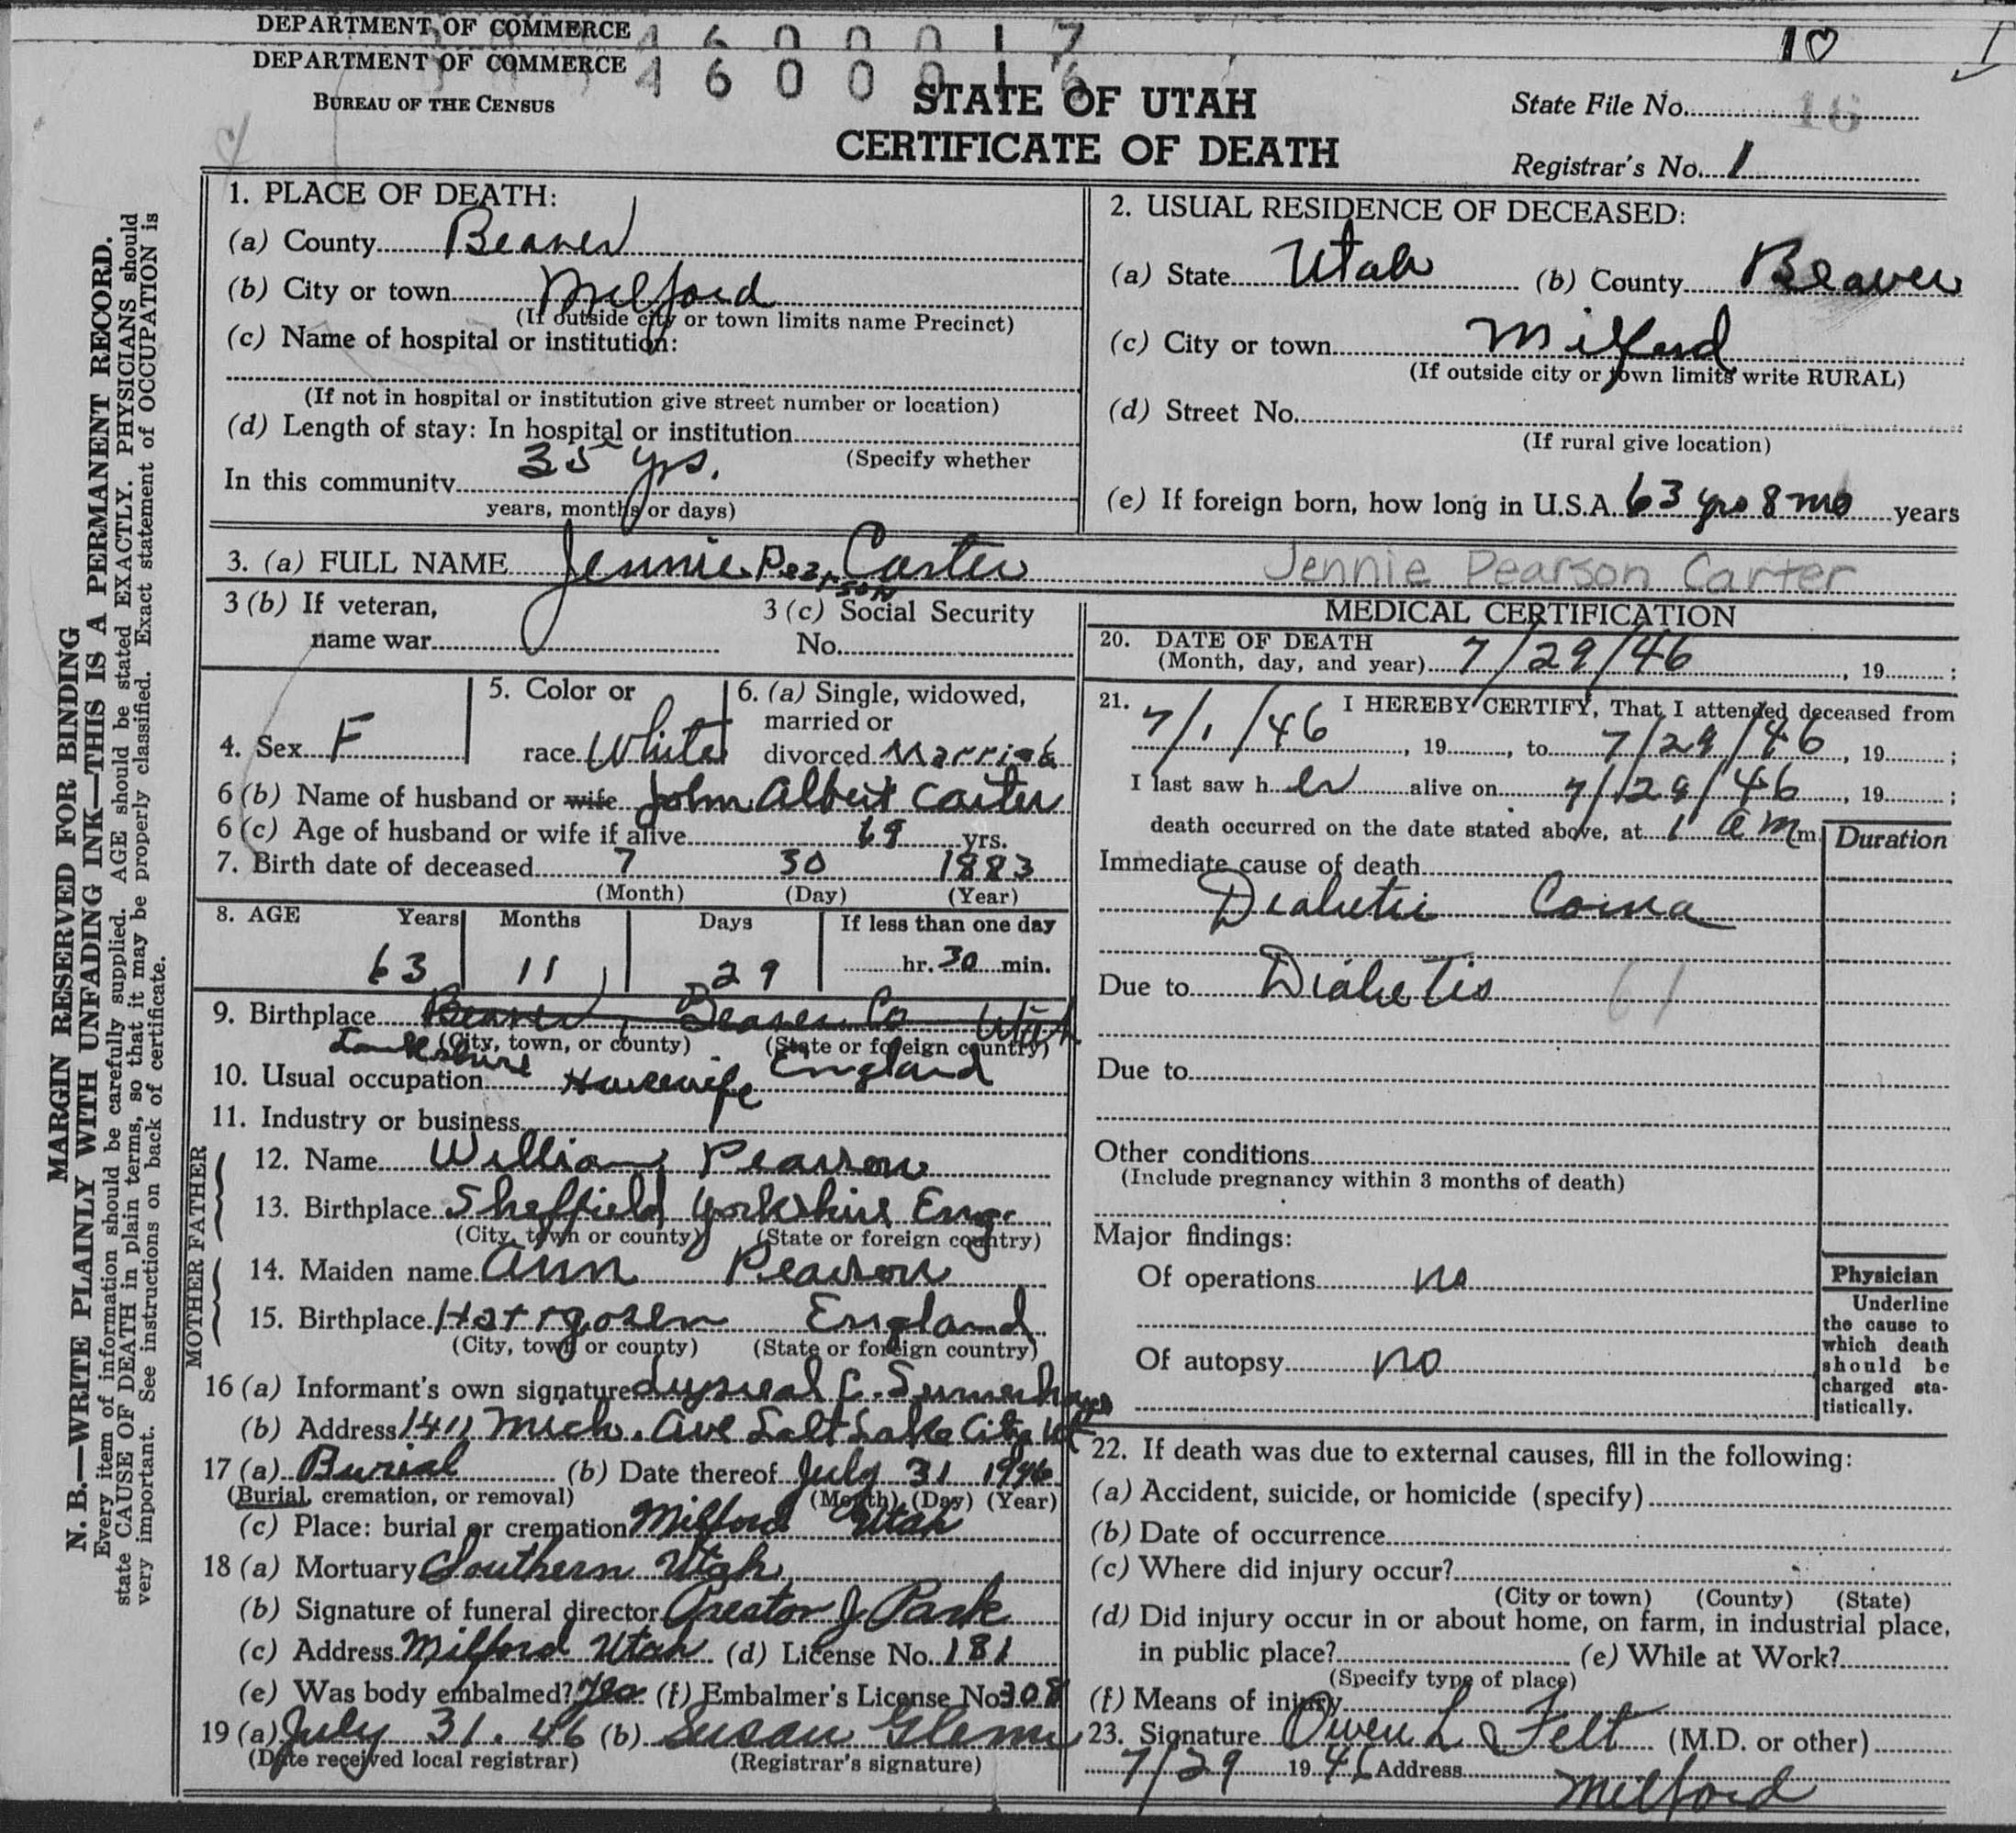 DEPARTMENT OF COMMERCE
4 6 0 0 0 1 7
10
DEPARTMENT OF COMMERCE
4 6 0 0 0 1 6
BUREAU OF THE CENSUS
STATE OF UTAH
CERTIFICATE OF DEATH
State File No. 16
Registrar's No. 1
MARGIN RESERVED FOR BINDING
N. B.—WRITE PLAINLY WITH UNFADING INK—THIS IS A PERMANENT RECORD.
Every item of information should be carefully supplied. AGE should be stated EXACTLY. PHYSICIANS should
state CAUSE OF DEATH in plain terms, so that it may be properly classified. Exact statement of OCCUPATION is
very important. See instructions on back of certificate.
1. PLACE OF DEATH:
(a) County Beaver
(b) City or town Milford
(If outside city or town limits name Precinct)
(c) Name of hospital or institution:
(If not in hospital or institution give street number or location)
(d) Length of stay: In hospital or institution
(Specify whether
In this community 35 yrs.
years, months or days)
2. USUAL RESIDENCE OF DECEASED:
(a) State Utah (b) County Beaver
(c) City or town Milford
(If outside city or town limits write RURAL)
(d) Street No.
(If rural give location)
(e) If foreign born, how long in U.S.A. 63 yrs 8 mo years
3. (a) FULL NAME Jennie Pearson Carter Jennie Pearson Carter
3 (b) If veteran,
name war
3 (c) Social Security
No.
4. Sex F
5. Color or
race White
6. (a) Single, widowed,
married or
divorced Married
6 (b) Name of husband or wife John Albert Carter
6 (c) Age of husband or wife if alive 69 yrs.
7. Birth date of deceased 7 30 1883
(Month) (Day) (Year)
8. AGE Years Months Days If less than one day
63 11 29 hr. 30 min.
9. Birthplace Beaver, Beaver Co Utah
(City, town, or county) (State or foreign country)
England
10. Usual occupation Housewife
11. Industry or business
FATHER
12. Name William Pearson
13. Birthplace Sheffield Yorkshire Eng.
(City, town or county) (State or foreign country)
MOTHER
14. Maiden name Ann Pearson
15. Birthplace England
(City, town or county) (State or foreign country)
16 (a) Informant's own signature C. Sumerhays
(b) Address 1411 Mich. Ave Salt Lake City Ut
17 (a) Burial (b) Date thereof July 31 1946
(Burial, cremation, or removal) (Month) (Day) (Year)
(c) Place: burial or cremation Milford Utah
18 (a) Mortuary Southern Utah
(b) Signature of funeral director Preston J Park
(c) Address Milford Utah (d) License No. 181
(e) Was body embalmed? Yes (f) Embalmer's License No. 308
19 (a) July 31. 46 (b) Susan
(Date received local registrar) (Registrar's signature)
MEDICAL CERTIFICATION
20. DATE OF DEATH
(Month, day, and year) 7/29/46, 19 ;
21. I HEREBY CERTIFY, That I attended deceased from
7/1/46, 19, to 7/29/46, 19 ;
I last saw h er alive on 7/29/46, 19 ;
death occurred on the date stated above, at 1 a m m.
Duration
Immediate cause of death
Diabetic Coma
Due to Diabetis 61
Due to
Other conditions
(Include pregnancy within 3 months of death)
Major findings:
Of operations no
Of autopsy no
Physician
Underline
the cause to
which death
should be
charged sta-
tistically.
22. If death was due to external causes, fill in the following:
(a) Accident, suicide, or homicide (specify)
(b) Date of occurrence
(c) Where did injury occur?
(City or town) (County) (State)
(d) Did injury occur in or about home, on farm, in industrial place,
in public place? (e) While at Work?
(Specify type of place)
(f) Means of injury
23. Signature Owen L Felt (M.D. or other)
7/29 1946 Address Milford